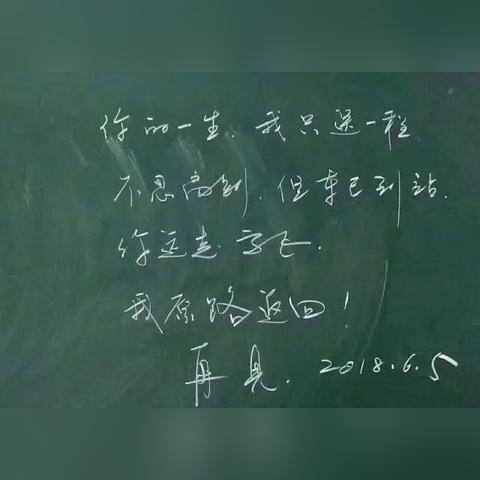 你的一生、我只送一程.
不忍离别.但车已到站.
你远走.高飞.
我原路返回!
再见.2018.6.5